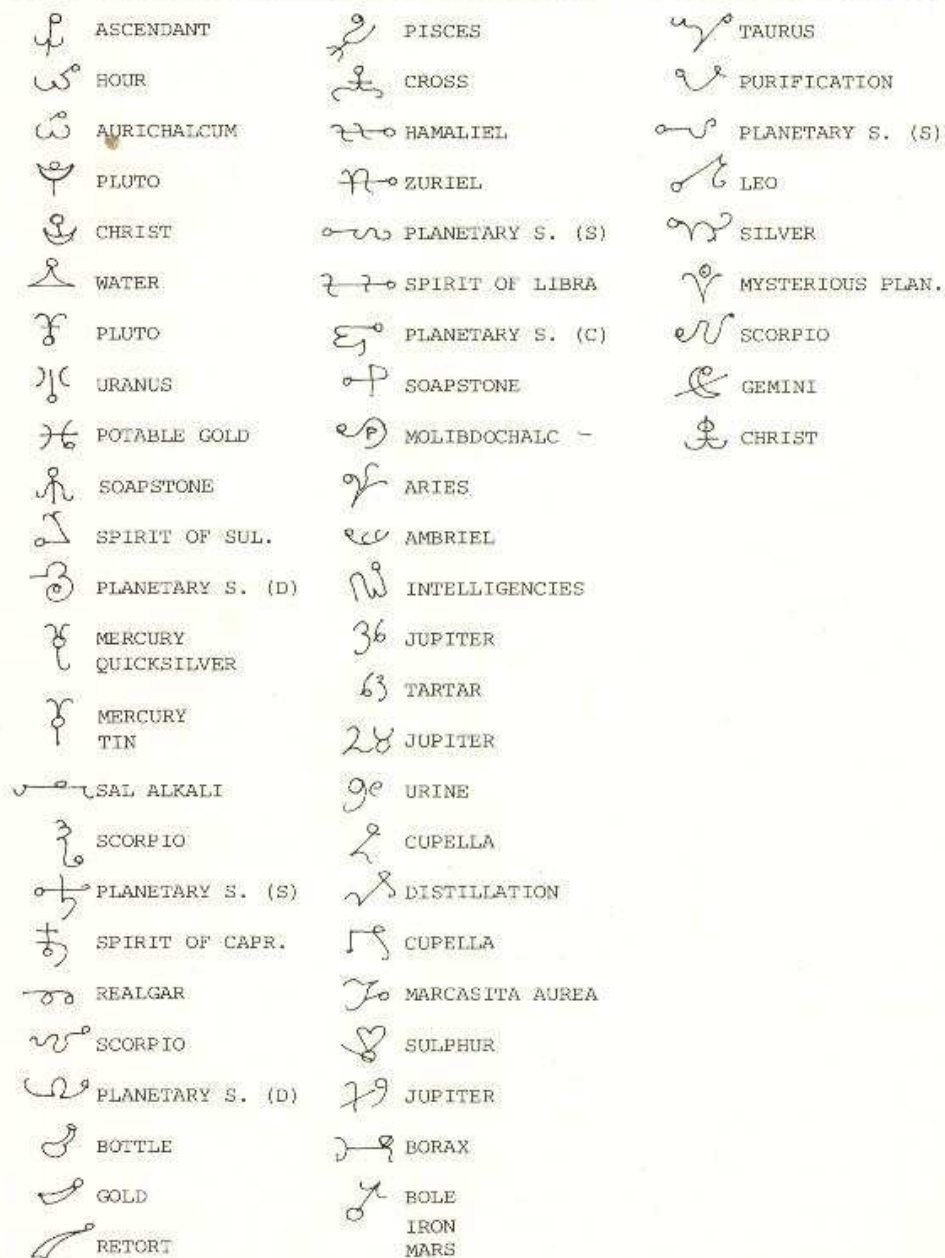 ASCENDANT
HOUR
AURICHALCUM
PLUTO
CHRIST
WATER
PLUTO
URANUS
POTABLE GOLD
SOAPSTONE
SPIRIT OF SUL.
PLANETARY S. (D)
MERCURY
QUICKSILVER
MERCURY
TIN
SAL ALKALI
SCORPIO
PLANETARY S. (S)
SPIRIT OF CAPR.
REALGAR
SCORPIO
PLANETARY S. (D)
BOTTLE
GOLD
RETORT
PISCES
CROSS
HAMALIEL
ZURIEL
PLANETARY S. (S)
SPIRIT OF LIBRA
PLANETARY S. (C)
SOAPSTONE
MOLIBDOCHALC -
ARIES
AMBRIEL
INTELLIGENCIES
JUPITER
TARTAR
JUPITER
URINE
CUPELLA
DISTILLATION
CUPELLA
MARCASITA AUREA
SULPHUR
JUPITER
BORAX
BOLE
IRON
MARS
TAURUS
PURIFICATION
PLANETARY S. (S)
LEO
SILVER
MYSTERIOUS PLAN.
SCORPIO
GEMINI
CHRIST